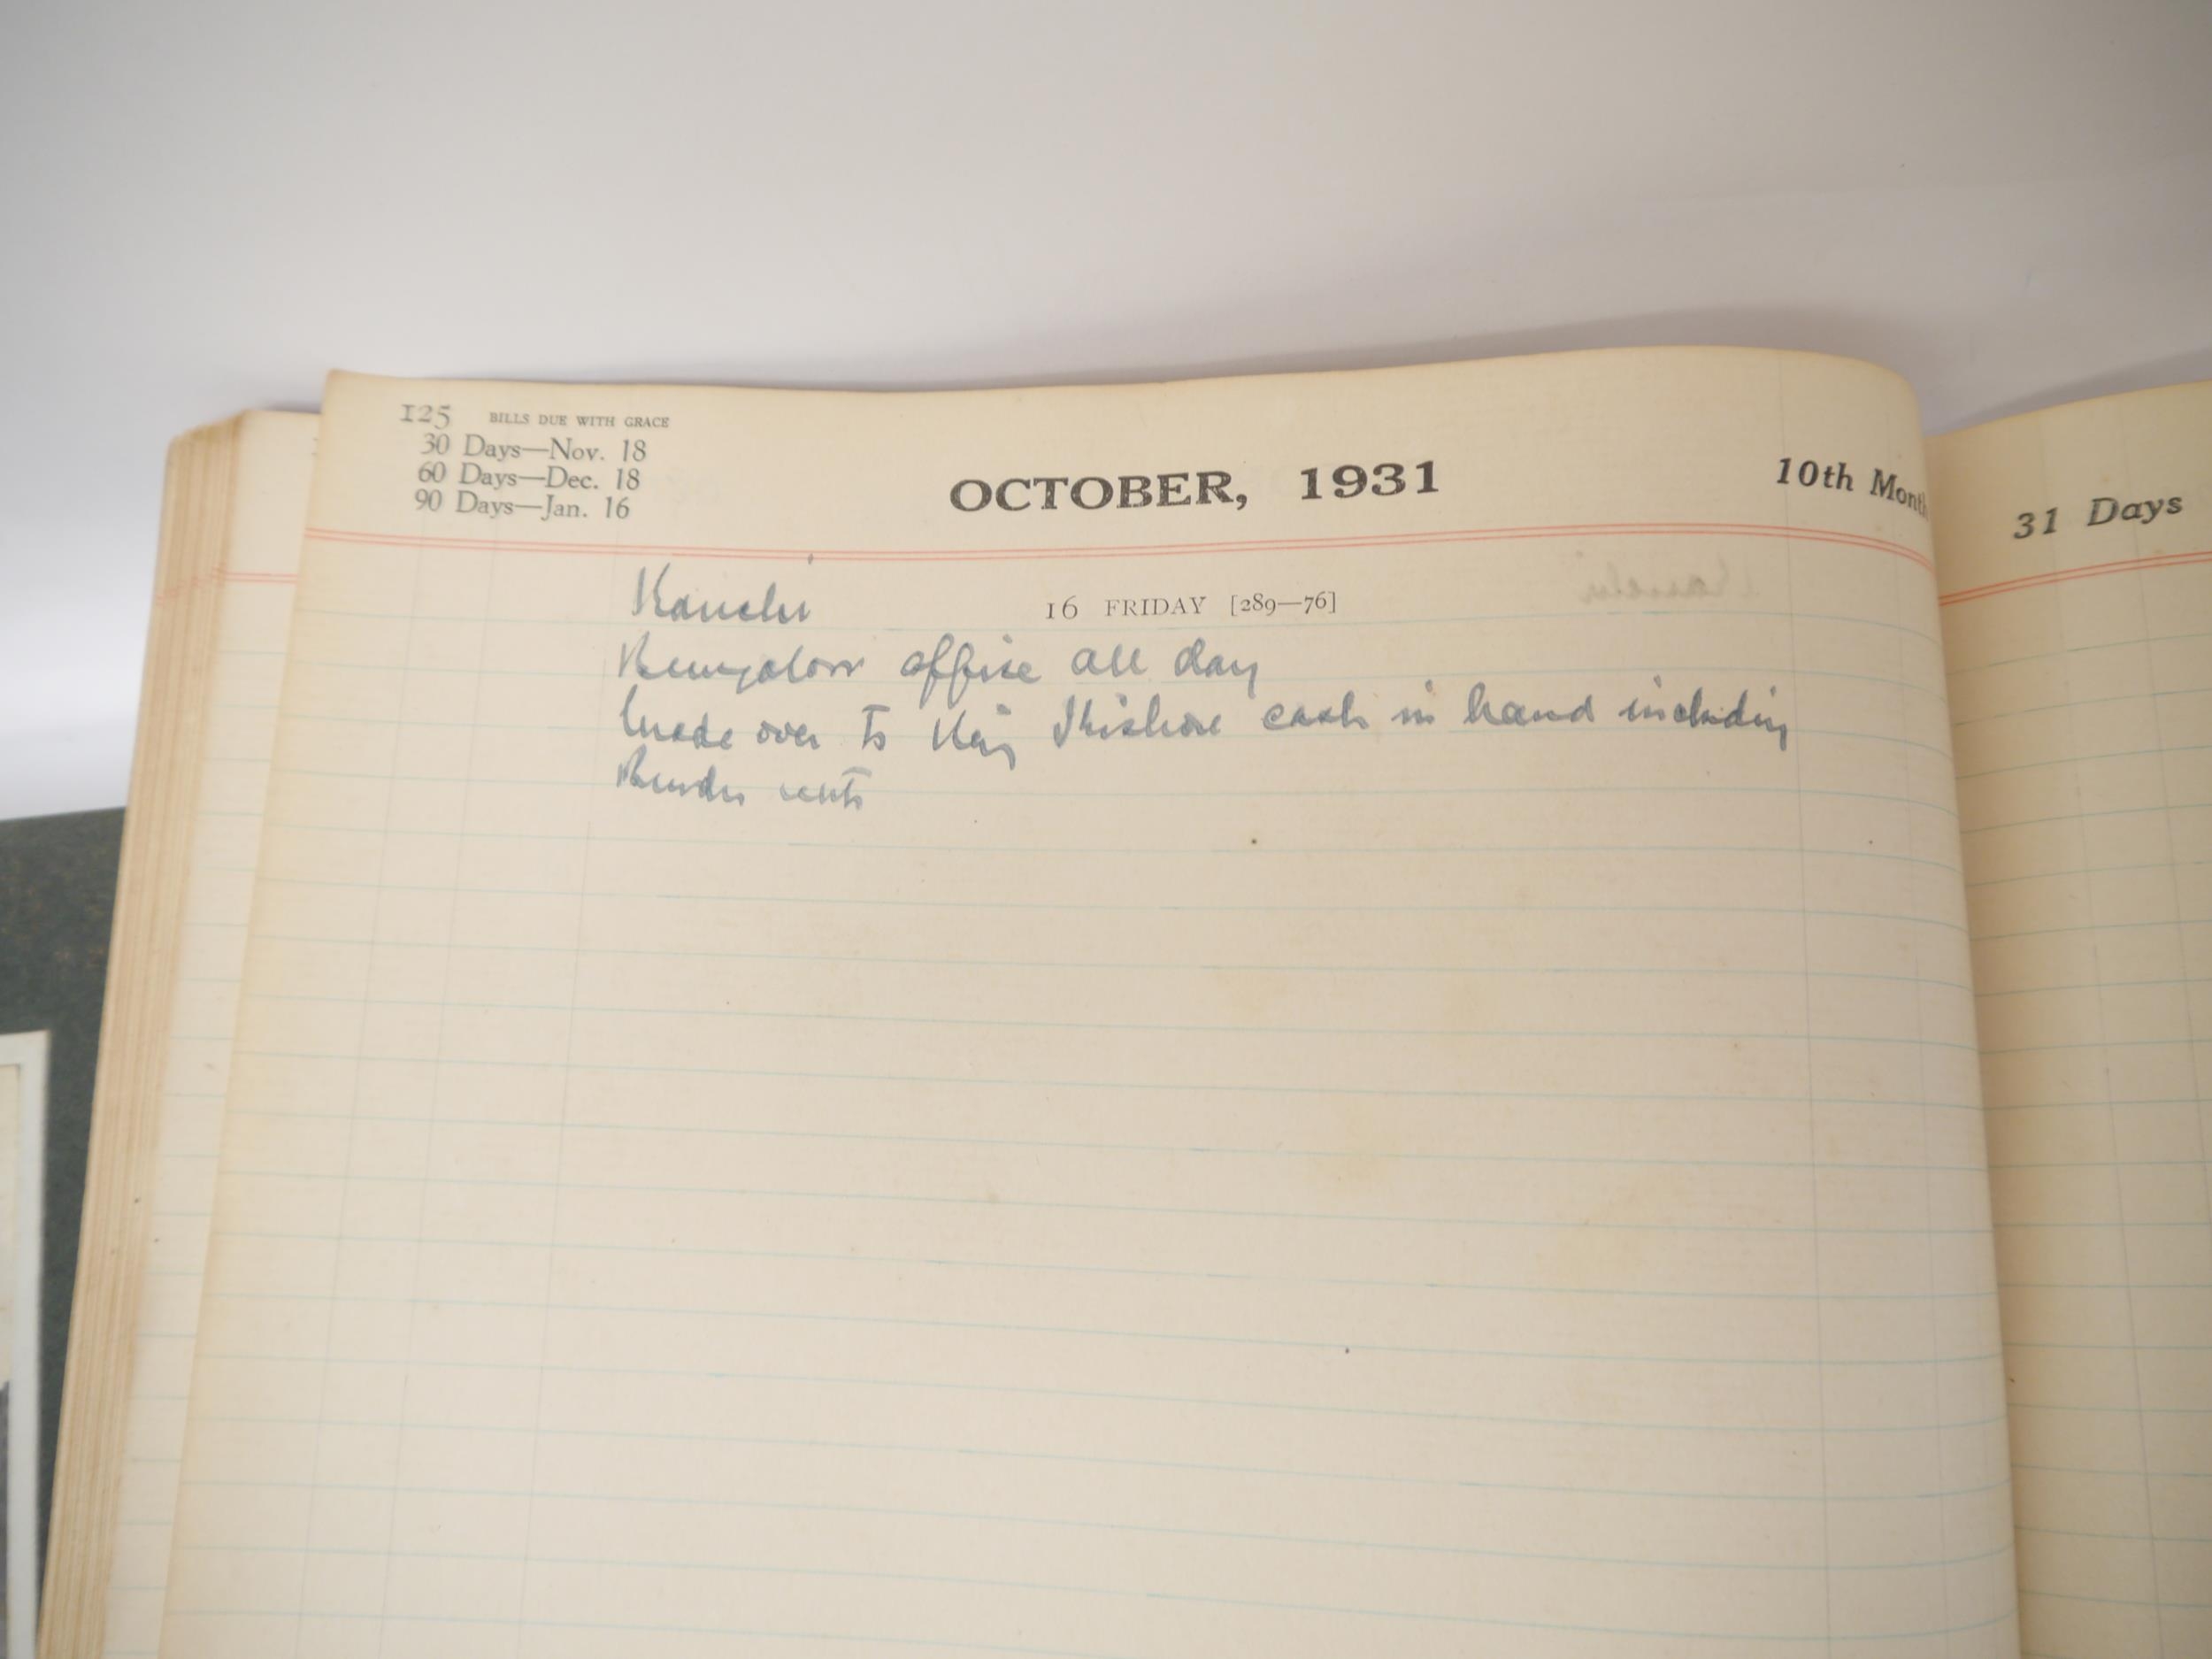 125 BILLS DUE WITH GRACE
30 Days—Nov. 18
60 Days—Dec. 18
90 Days—Jan. 16
OCTOBER, 1931
10th Month
31 Days
16 FRIDAY [289—76]
office all day
Made over to Kishore cash in hand including
rents